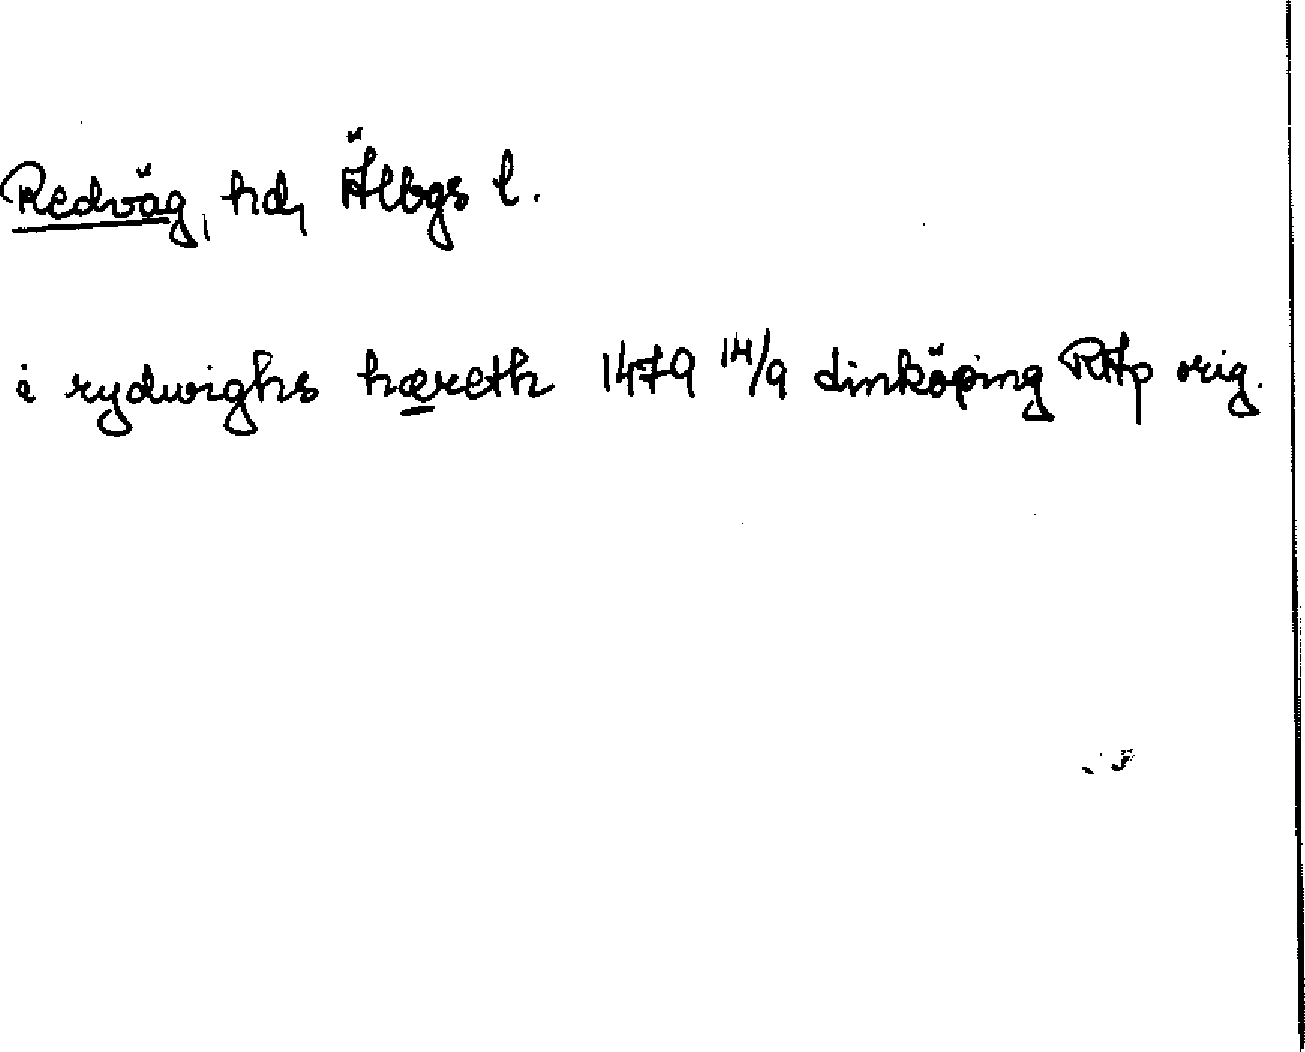 Redväg, hd, Älbgs l.
i rydwighs hæreth 1479 14/9 Linköping RAp orig.